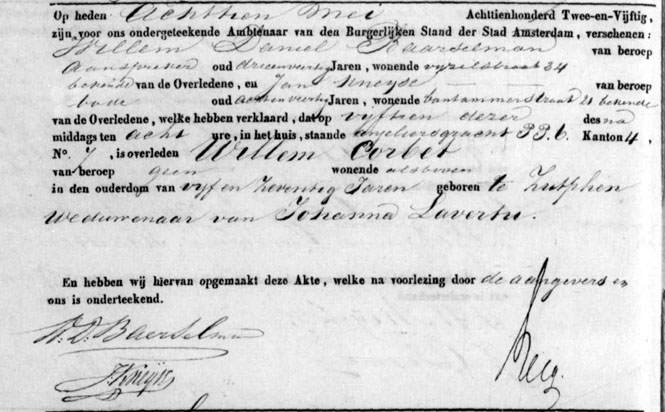 Op heden Achttien Mei Achttienhonderd Twee-en-Vijftig,
zijn, voor ons ondergeteekende Ambtenaar van den Burgerlijken Stand der Stad Amsterdam, verschenen:
Willem Daniel Baarselman van beroep
Aanspreker oud drieenveertig Jaren, wonende vijzelstraat 34
bekende van de Overledene, en Jan Kneyse van beroep
bode oud achtenveertig Jaren, wonende bantammerstraat 21 bekende
van de Overledene, welke hebben verklaard, dat op vijftien dezer des na
middags ten acht ure, in het huis, staande anjeliersgracht PP. 6. Kanton 4,
No. 7, is overleden Willem Corbet
van beroep geen wonende alsboven
in den ouderdom van vijf en zeventig Jaren geboren te Zutphen
Weduwenaar van Johanna Lavertu.
En hebben wij hiervan opgemaakt deze Akte, welke na voorlezing door de aangevers en
ons is onderteekend.
W. D. Baerselman
J. Kneyse